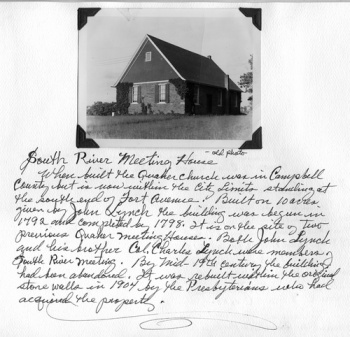 - old photo
South River Meeting House
When built the Quaker church was in Campbell
County but is now within the City Limits standing at
the south end of Fort Avenue. Built on 10 acres
given by John Lynch the building was begun in
1792 and completed by 1798. It is on the site of two
previous Quaker Meeting Houses. Both John Lynch
and his brother Col. Charles Lynch were members of
South River Meeting. By Mid 19th century the building
had been abandoned. It was rebuilt within the original
stone walls in 1904 by the Presbyterians who had
acquired the property.